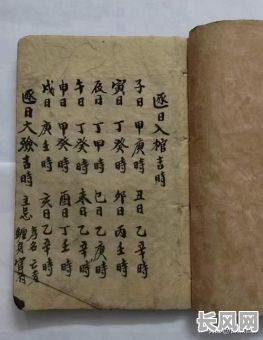 逐日入棺吉時
子日 甲庚時 丑日 乙辛時
寅日 丁癸時 卯日 丙壬時
辰日 丁甲時 巳日 乙庚時
午日 丁癸時 未日 乙辛時
申日 甲癸時 酉日 丁壬時
戌日 庚壬時 亥日 乙辛時
逐日大殮吉時 主忌
长风网